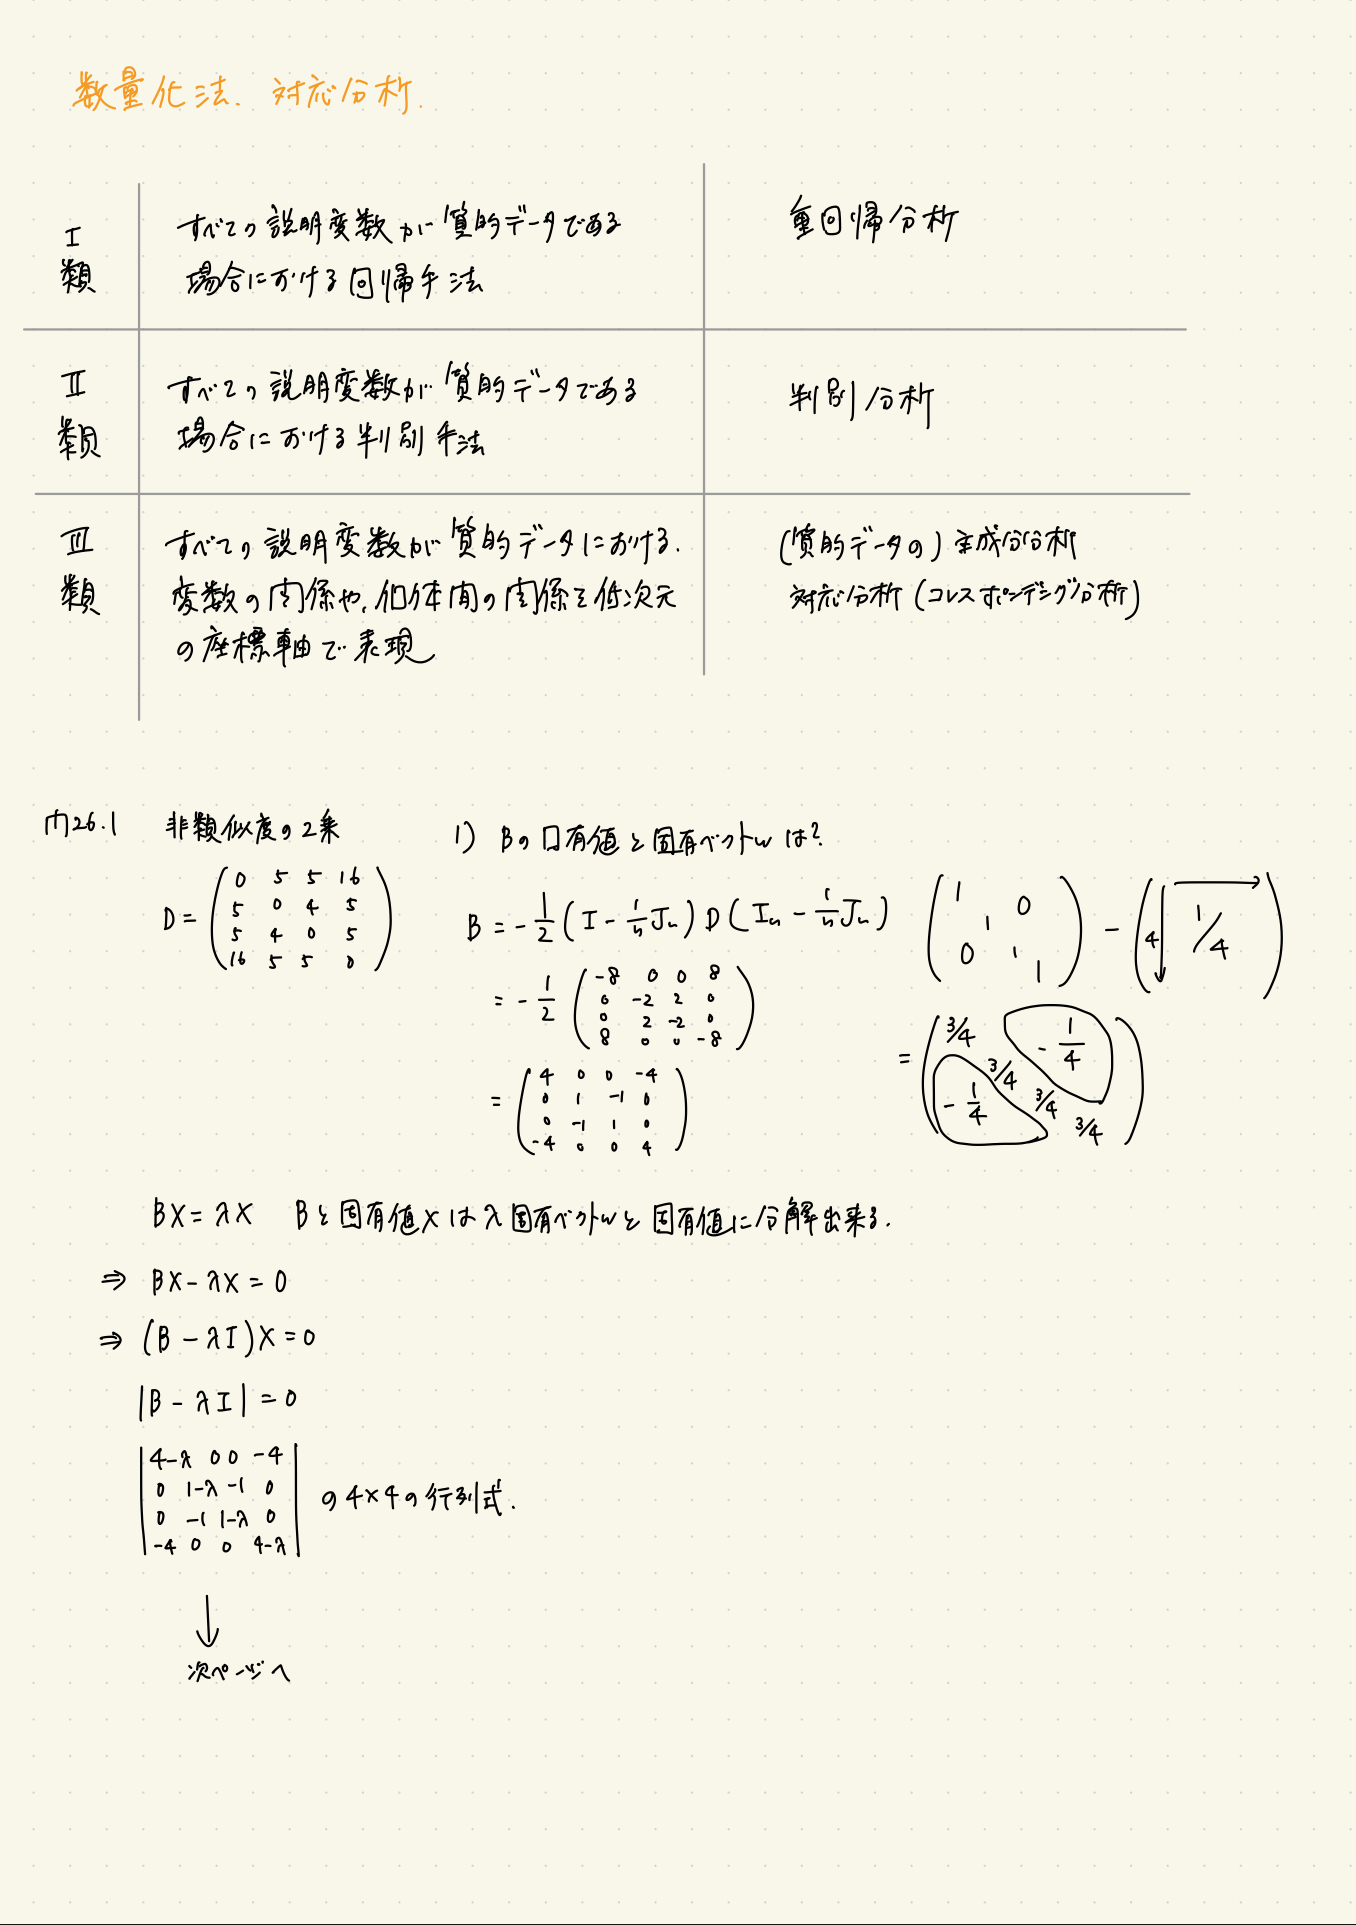 数量化法. 対応分析.
I類
すべての説明変数が質的データである
場合における回帰手法
重回帰分析
II類
すべての説明変数が質的データである
場合における判別手法
判別分析
III類
すべての説明変数が質的データにおける.
変数の関係や,個体間の関係を低次元
の座標軸で表現
(質的データの)主成分分析
対応分析(コレスポンデンシグ分析)
問26.1 非類似度の2乗
D = (0 5 5 16
5 0 4 5
5 4 0 5
16 5 5 0)
1) Bの固有値と固有ベクトルは?
B = -1/2 (I - 1/n Jn) D (In - 1/n Jn)
= -1/2 (-8 0 0 8
0 -2 2 0
0 2 -2 0
8 0 0 -8)
= (4 0 0 -4
0 1 -1 0
0 -1 1 0
-4 0 0 4)
(1 0
1
0 1
1) - (4 1/4)
= (3/4 -1/4
3/4
-1/4 3/4
3/4)
BX = λX Bと固有値Xはλ固有ベクトルと固有値に分解出来る.
⇒ BX - λX = 0
⇒ (B - λI)X = 0
|B - λI| = 0
|4-λ 0 0 -4
0 1-λ -1 0
0 -1 1-λ 0
-4 0 0 4-λ| の4×4の行列式.
↓
次ページへ